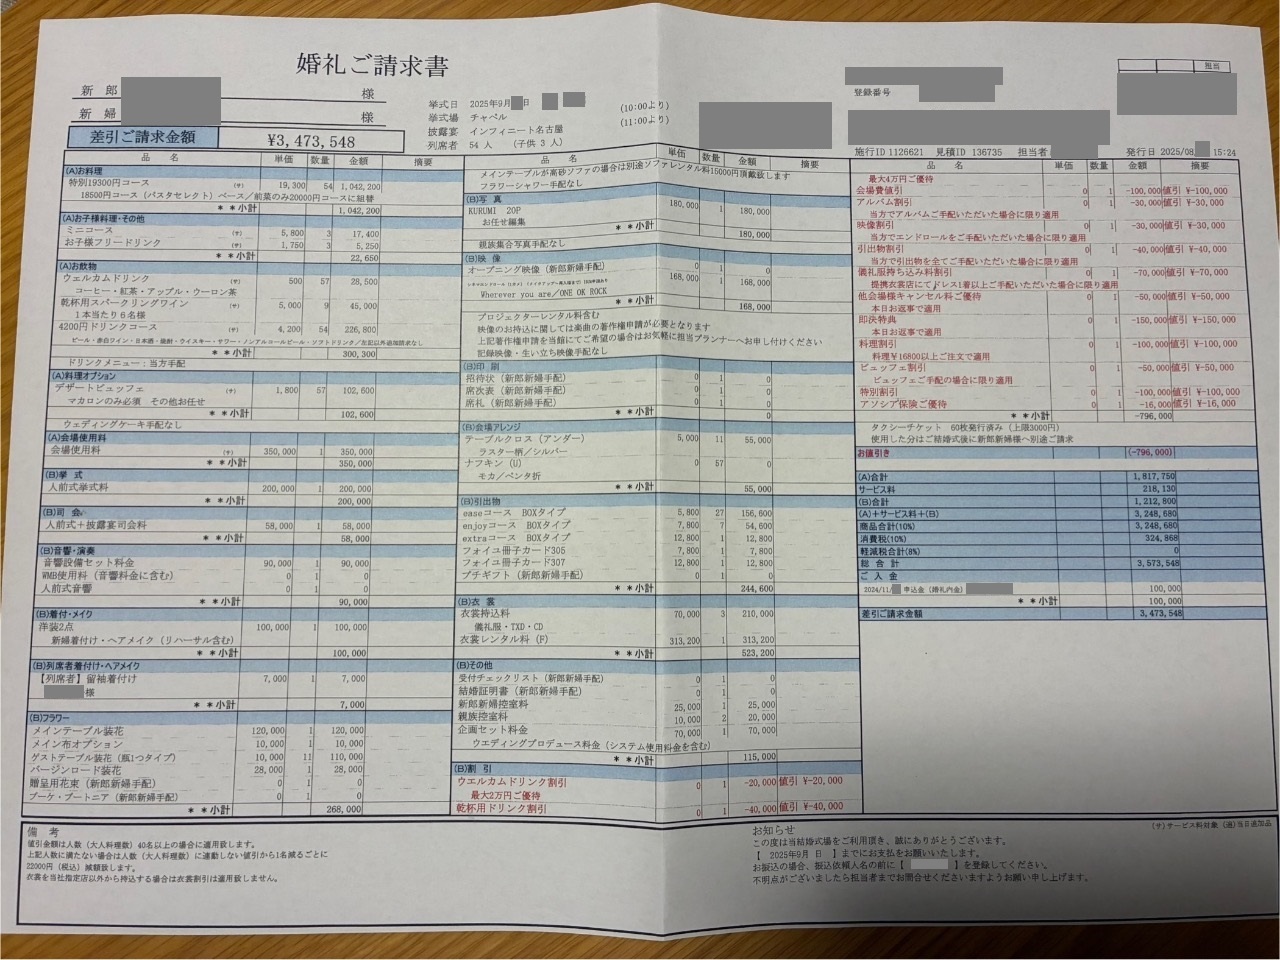 婚礼ご請求書
新 郎 様
新 婦 様
差引ご請求金額 ¥3,473,548
挙式日 2025年9月 日 (10:00より)
挙式場 チャペル (11:00より)
披露宴 インフィニート名古屋
列席者 54 人 (子供 3 人)
担当
登録番号
施行ID 1126621 見積ID 136735 担当者 発行日 2025/08/ 15:24
品 名 単価 数量 金額 摘要
(A)お料理
特別19300円コース (サ) 19,300 54 1,042,200
18500円コース(パスタセレクト)ベース/前菜のみ20000円コースに組替
**小計 1,042,200
(A)お子様料理・その他
ミニコース (サ) 5,800 3 17,400
お子様フリードリンク (サ) 1,750 3 5,250
**小計 22,650
(A)お飲物
ウェルカムドリンク (サ) 500 57 28,500
コーヒー・紅茶・アップル・ウーロン茶
乾杯用スパークリングワイン (サ) 5,000 9 45,000
1本当たり6名様
4200円ドリンクコース (サ) 4,200 54 226,800
ビール・赤白ワイン・日本酒・焼酎・ウイスキー・サワー・ノンアルコールビール・ソフトドリンク/左記以外追加請求なし
**小計 300,300
ドリンクメニュー:当方手配
(A)料理オプション
デザートビュッフェ (サ) 1,800 57 102,600
マカロンのみ必須 その他お任せ
**小計 102,600
ウェディングケーキ手配なし
(A)会場使用料
会場使用料 (サ) 350,000 1 350,000
**小計 350,000
(B)挙 式
人前式挙式料 200,000 1 200,000
**小計 200,000
(B)司 会
人前式+披露宴司会料 58,000 1 58,000
**小計 58,000
(B)音響・演奏
音響設備セット料金 90,000 1 90,000
WMB使用料(音響料金に含む) 0 1 0
人前式音響 0 1 0
**小計 90,000
(B)着付・メイク
洋装2点 100,000 1 100,000
新婦着付け・ヘアメイク(リハーサル含む)
**小計 100,000
(B)列席者着付け・ヘアメイク
【列席者】留袖着付け 7,000 1 7,000
様
**小計 7,000
(B)フラワー
メインテーブル装花 120,000 1 120,000
メイン布オプション 10,000 1 10,000
ゲストテーブル装花(瓶1つタイプ) 10,000 11 110,000
バージンロード装花 28,000 1 28,000
贈呈用花束(新郎新婦手配) 0 1 0
ブーケ・ブートニア(新郎新婦手配) 0 1 0
**小計 268,000
品 名 単価 数量 金額 摘要
メインテーブルが高砂ソファの場合は別途ソファレンタル料15000円頂戴致します
フラワーシャワー手配なし
(B)写 真
KURUMI 20P 180,000 1 180,000
お任せ編集
**小計 180,000
親族集合写真手配なし
(B)映 像
オープニング映像(新郎新婦手配) 0 1 0
168,000 1 168,000
Wherever you are/ONE OK ROCK
**小計 168,000
プロジェクターレンタル料含む
映像のお持込に関しては楽曲の著作権申請が必要となります
上記著作権申請を当館にてご希望の場合はお気軽に担当プランナーへお申し付けください
記録映像・生い立ち映像手配なし
(B)印 刷
招待状(新郎新婦手配) 0 1 0
席次表(新郎新婦手配) 0 1 0
席札(新郎新婦手配) 0 1 0
**小計 0
(B)会場アレンジ
テーブルクロス(アンダー) 5,000 11 55,000
ラスター柄/シルバー
ナフキン(U) 0 57 0
モカ/ペンタ折
**小計 55,000
(B)引出物
easeコース BOXタイプ 5,800 27 156,600
enjoyコース BOXタイプ 7,800 7 54,600
extraコース BOXタイプ 12,800 1 12,800
フォイユ冊子カード305 7,800 1 7,800
フォイユ冊子カード307 12,800 1 12,800
プチギフト(新郎新婦手配) 0 1 0
**小計 244,600
(B)衣 裳
衣裳持込料 70,000 3 210,000
儀礼服・TXD・CD
衣裳レンタル料(F) 313,200 1 313,200
**小計 523,200
(B)その他
受付チェックリスト(新郎新婦手配) 0 1 0
結婚証明書(新郎新婦手配) 0 1 0
新郎新婦控室料 25,000 1 25,000
親族控室料 10,000 2 20,000
企画セット料金 70,000 1 70,000
ウエディングプロデュース料金(システム使用料金を含む)
**小計 115,000
(B)割 引
ウエルカムドリンク割引 0 1 -20,000 値引 ¥-20,000
最大2万円ご優待
乾杯用ドリンク割引 0 1 -40,000 値引 ¥-40,000
品 名 単価 数量 金額 摘要
最大4万円ご優待
会場費値引 0 1 -100,000 値引 ¥-100,000
アルバム割引 0 1 -30,000 値引 ¥-30,000
当方でアルバムご手配いただいた場合に限り適用
映像割引 0 1 -30,000 値引 ¥-30,000
当方でエンドロールをご手配いただいた場合に限り適用
引出物割引 0 1 -40,000 値引 ¥-40,000
当方で引出物を全てご手配いただいた場合に限り適用
儀礼服持ち込み料割引 0 1 -70,000 値引 ¥-70,000
提携衣裳店にてドレス1着以上ご手配いただいた場合に限り適用
他会場様キャンセル料ご優待 0 1 -50,000 値引 ¥-50,000
本日お返事で適用
即決特典 0 1 -150,000 値引 ¥-150,000
本日お返事で適用
料理割引 0 1 -100,000 値引 ¥-100,000
料理¥16800以上ご注文で適用
ビュッフェ割引 0 1 -50,000 値引 ¥-50,000
ビュッフェご手配の場合に限り適用
特別割引 0 1 -100,000 値引 ¥-100,000
アソシア保険ご優待 0 1 -16,000 値引 ¥-16,000
**小計 -796,000
タクシーチケット 60枚発行済み(上限3000円)
使用した分はご結婚式後に新郎新婦様へ別途ご請求
お値引き (-796,000)
(A)合計 1,817,750
サービス料 218,130
(B)合計 1,212,800
(A)+サービス料+(B) 3,248,680
商品合計(10%) 3,248,680
消費税(10%) 324,868
軽減税合計(8%) 0
総 合 計 3,573,548
ご 入 金
2024/11/ 申込金(婚礼内金) 100,000
**小計 100,000
差引ご請求金額 3,473,548
(サ)サービス料対象 (追)当日追加品
備 考
値引金額は人数(大人料理数)40名以上の場合に適用致します。
上記人数に満たない場合は人数(大人料理数)に連動しない値引から1名減るごとに
22000円(税込)減額致します。
衣裳を当社指定店以外から持込する場合は衣裳割引は適用致しません。
お知らせ
この度は当結婚式場をご利用頂き、誠にありがとうございます。
【 2025年9月 日 】までにお支払をお願いいたします。
お振込の場合、振込依頼人名の前に【 】を登録してください。
不明点がございましたら担当者までお問合せくださいますようお願い申し上げます。